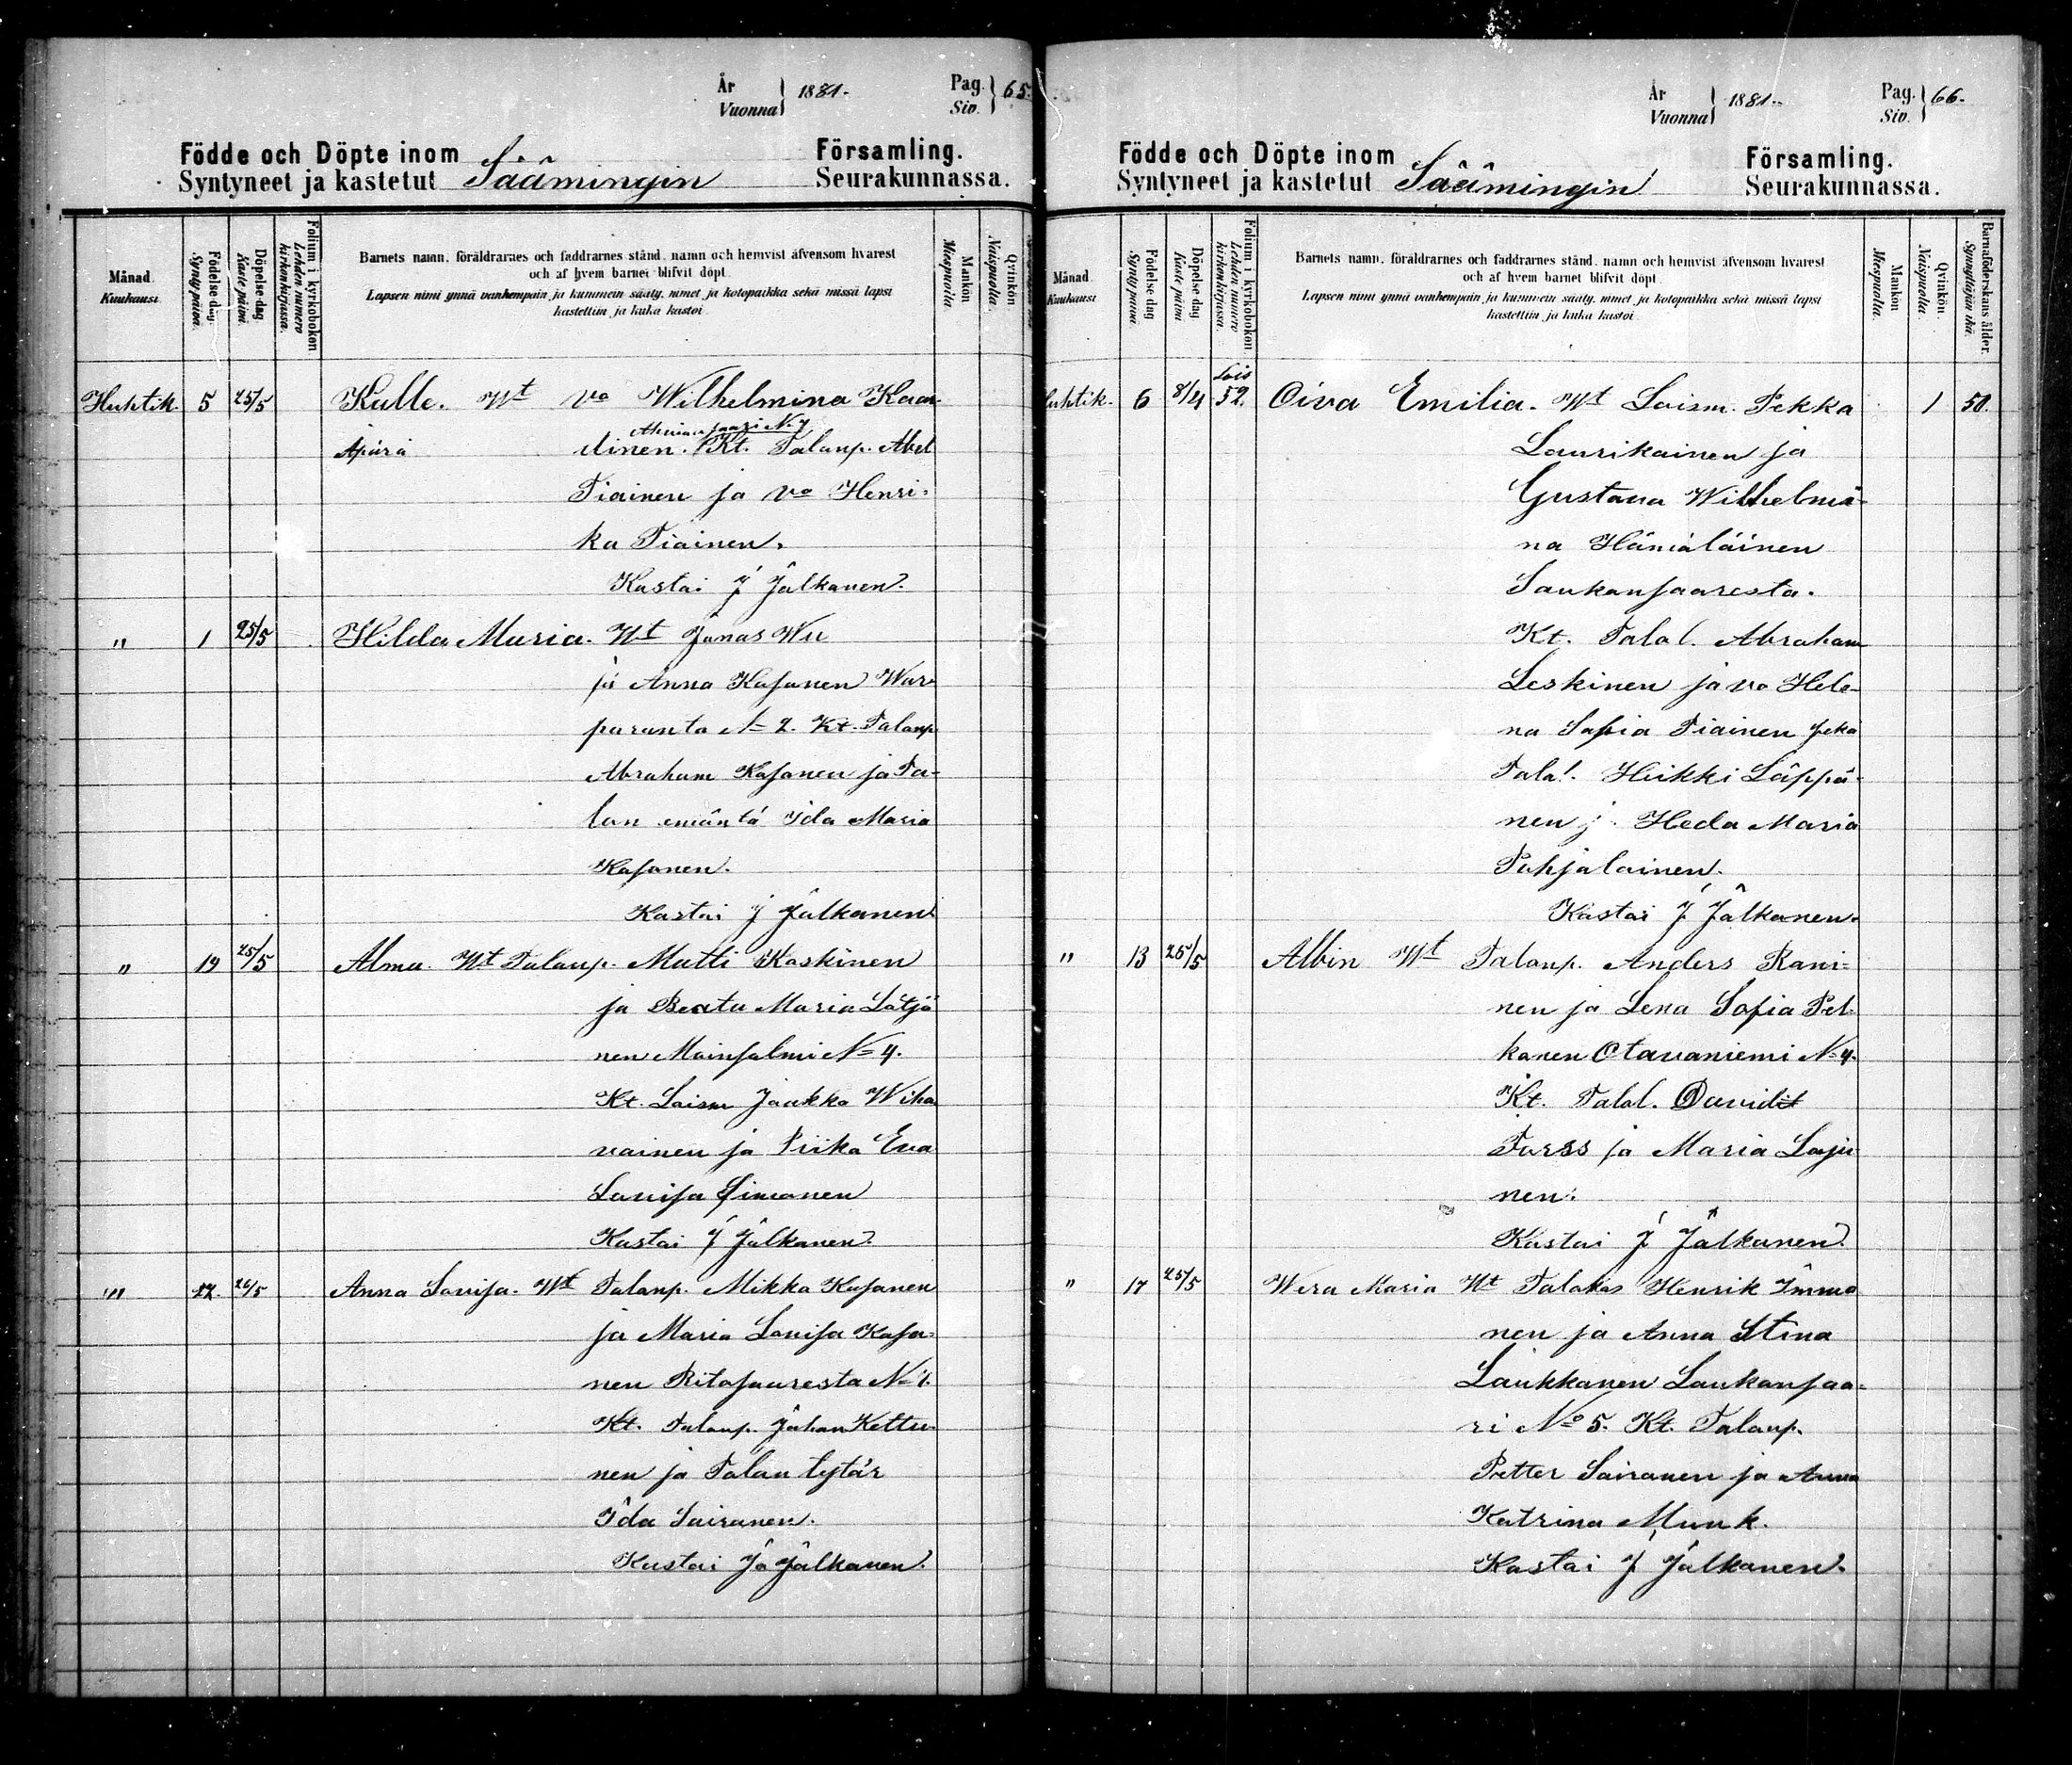 År
Vuonna } 1881.
Pag.
Siv. } 65.
Födde och Döpte inom
Syntyneet ja kastetut Säämingin
Församling.
Seurakunnassa.
Månad.
Kuukausi.
Födelse dag.
Synty päivä.
Döpelse dag.
Kaste päivä.
Folium i kyrkoboken
Lehden numero
kirkonkirjassa.
Barnets namn, föräldrarnes och faddrarnes stånd, namn och hemvist äfvensom hvarest
och af hvem barnet blifvit döpt.
Lapsen nimi ynnä vanhempain ja kummein sääty, nimet ja kotopaikka sekä missä lapsi
kastettiin ja kuka kastoi.
Mankön
Miespuolia.
Qvinkön
Naispuolia.
Huhtik. 5 25/5 Kalle. Wt va Wilhelmina Kaar-
Ahvian saari No 7
Äpärä tinen. Kt. Talonp. Abel
Tiainen ja va Henri-
ka Tiainen.
Kastoi J Jalkanen.
" 1 25/5 Hilda Maria. Wt Jonas Wu
ja Anna Kosonen War-
paranta No 2. Kt. Talonp.
Abraham Kosonen ja Ta-
lon emäntä Ida Maria
Kosonen.
Kastoi J Jalkanen.
" 19 25/5 Alma. Wt Talonp. Matti Kaskinen
ja Beata Maria Lätjö
nen Moinsalmi No 4.
Kt. Loism Jaakko Wiha
vainen ja Piika Eva
Lovisa Simanen
Kastoi J Jalkanen.
" 27. 26/5 Anna Lovisa. Wt Talonp. Mikko Kosonen
ja Maria Lovisa Koso-
nen Ritosaaresta No 1.
Kt. Talonp. Johan Kettu-
nen ja Talon tytär
Ida Sairanen.
Kastoi J Jalkanen.
År
Vuonna } 1881.
Pag.
Siv. } 66.
Födde och Döpte inom
Syntyneet ja kastetut Säämingin
Församling.
Seurakunnassa.
Månad
Kuukausi
Födelse dag
Synty päivä.
Döpelse dag
Kaste päivä
Folium i kyrkoboken
Lehden numero
kirkonkirjassa.
Barnets namn, föräldrarnes och faddrarnes stånd, namn och hemvist äfvensom hvarest
och af hvem barnet blifvit döpt.
Lapsen nimi ynnä vanhempain ja kummein sääty, nimet ja kotopaikka sekä missä lapsi
kastettiin ja kuka kastoi.
Mankön
Miespuolia.
Qvinkön.
Naispuolia.
Barnaföderskans ålder.
Synnyttäjän ikä.
Lois
Huhtik. 6 8/4 52. Oiva Emilia. Wt Loism. Pekka 1 50.
Laurikainen ja
Gustava Wilhelmi-
na Hämäläinen
Laukansaaresta.
Kt. Talol. Abraham
Leskinen ja va Hele-
na Sofia Tiainen sekä
Talol. Heikki Läppä-
nen j. Heda Maria
Pohjalainen.
Kastoi J Jalkanen.
" 13 25/5 Albin Wt Talonp. Anders Rani-
nen ja Lena Sofia Pel-
konen Otavaniemi No 4.
Kt. Talol. David
Torss ja Maria Laju
nen.
Kastoi J Jalkanen.
" 17 25/5 Wera Maria Wt Talokas Henrik Immo
nen ja Anna Stina
Laukkanen Laukansaa-
ri No 5. Kt. Talonp.
Petter Sairanen ja Anna
Katrina Munk.
Kastoi J Jalkanen.